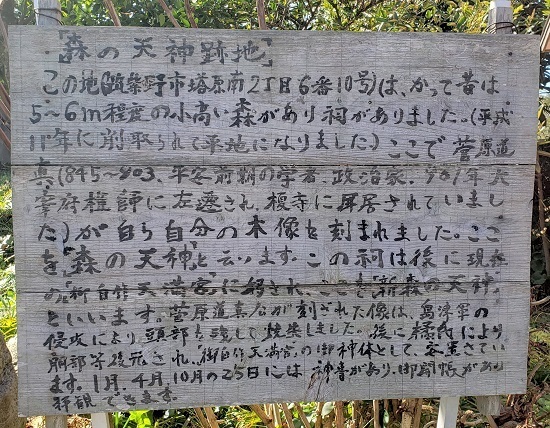 [森の天神跡地]
この地(筑紫野市塔原南2丁目6番10号)は、かって昔は
5～6m程度の小高い森があり祠がありました。(平成
11年に削取られて平地になりました) ここで 菅原道
真(845～903、平安前期の学者、政治家、901年大
宰府権師に左遷され、榎寺に居されていまし
た)が自ら自分の木像を刻まれました。ここ
を[森の天神]と云います。この祠は後に現在
の[御自作天満宮]に移され、ここを[新森の天神]
といいます。菅原道真公が刻まれた像は、島津軍の
侵攻により頭部を残して焼失しました。後に橘氏により
胴部等復元され、御自作天満宮の御神体として、安置さてい
ます。1月、4月、10月の25日には 神事があり、御開帳があり
拝観できます。